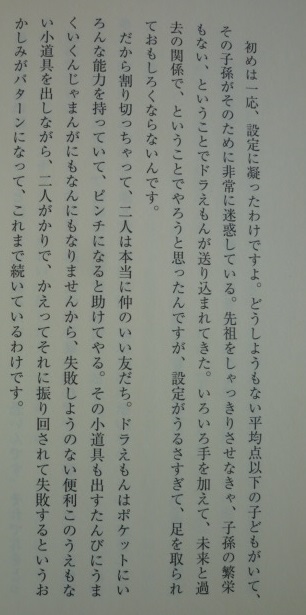 初めは一応、設定に凝ったわけですよ。どうしようもない平均点以下の子どもがいて、
その子孫がそのために非常に迷惑している。先祖をしゃっきりさせなきゃ、子孫の繁栄
もない、ということでドラえもんが送り込まれてきた。いろいろ手を加えて、未来と過
去の関係で、ということでやろうと思ったんですが、設定がうるさすぎて、足を取られ
ておもしろくならないんです。
だから割り切っちゃって、二人は本当に仲のいい友だち。ドラえもんはポケットにい
ろんな能力を持っていて、ピンチになると助けてやる。その小道具も出すたんびにうま
くいくんじゃまんがにもなんにもなりませんから、失敗しようのない便利このうえもな
い小道具を出しながら、二人がかりで、かえってそれに振り回されて失敗するというお
かしみがパターンになって、これまで続いているわけです。